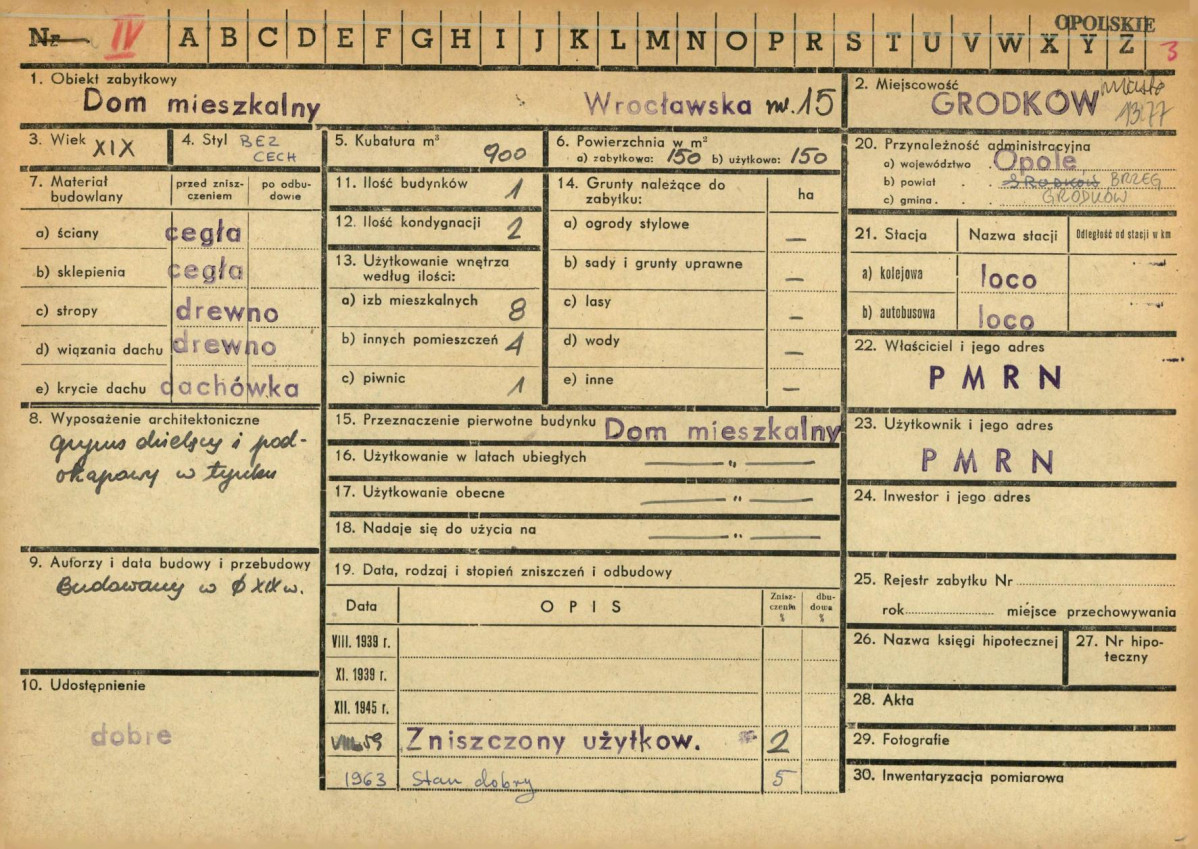 OPOLSKIE
Nr IV A B C D E F G H I J K L M N O P R S T U V W X Y Z 3
1. Obiekt zabytkowy
Dom mieszkalny Wrocławska nr. 15
2. Miejscowość
GRODKÓW miasto
1377
3. Wiek XIX
4. Styl BEZ
CECH
5. Kubatura m³
900
6. Powierzchnia w m²
a) zabytkowa: 150 b) użytkowa: 150
20. Przynależność administracyjna
a) województwo Opole
b) powiat GRODKÓW BRZEG
c) gmina GRODKÓW
7. Materiał
budowlany
przed znisz-
czeniem
po odbu-
dowie
a) ściany cegła
b) sklepienia cegła
c) stropy drewno
d) wiązania dachu drewno
e) krycie dachu dachówka
11. Ilość budynków 1
12. Ilość kondygnacji 2
13. Użytkowanie wnętrza
według ilości:
a) izb mieszkalnych 8
b) innych pomieszczeń 4
c) piwnic 1
14. Grunty należące do
zabytku:
ha
a) ogrody stylowe —
b) sady i grunty uprawne —
c) lasy —
d) wody —
e) inne —
21. Stacja Nazwa stacji Odległość od stacji w km
a) kolejowa loco
b) autobusowa loco
22. Właściciel i jego adres
PMRN
23. Użytkownik i jego adres
PMRN
24. Inwestor i jego adres
8. Wyposażenie architektoniczne
gzyms dzielący i pod-
okapowy w tynku
9. Autorzy i data budowy i przebudowy
Budowany w XIX w.
10. Udostępnienie
dobre
15. Przeznaczenie pierwotne budynku Dom mieszkalny
16. Użytkowanie w latach ubiegłych — „ —
17. Użytkowanie obecne — „ —
18. Nadaje się do użycia na — „ —
19. Data, rodzaj i stopień zniszczeń i odbudowy
Data OPIS
Znisz-
czenia
%
dbu-
dowa
%
VIII. 1939 r.
XI. 1939 r.
XII. 1945 r.
VIII. 59 Zniszczony użytkow. 2
1963 Stan dobry 5
25. Rejestr zabytku Nr
rok miejsce przechowywania
26. Nazwa księgi hipotecznej
27. Nr hipo-
teczny
28. Akta
29. Fotografie
30. Inwentaryzacja pomiarowa